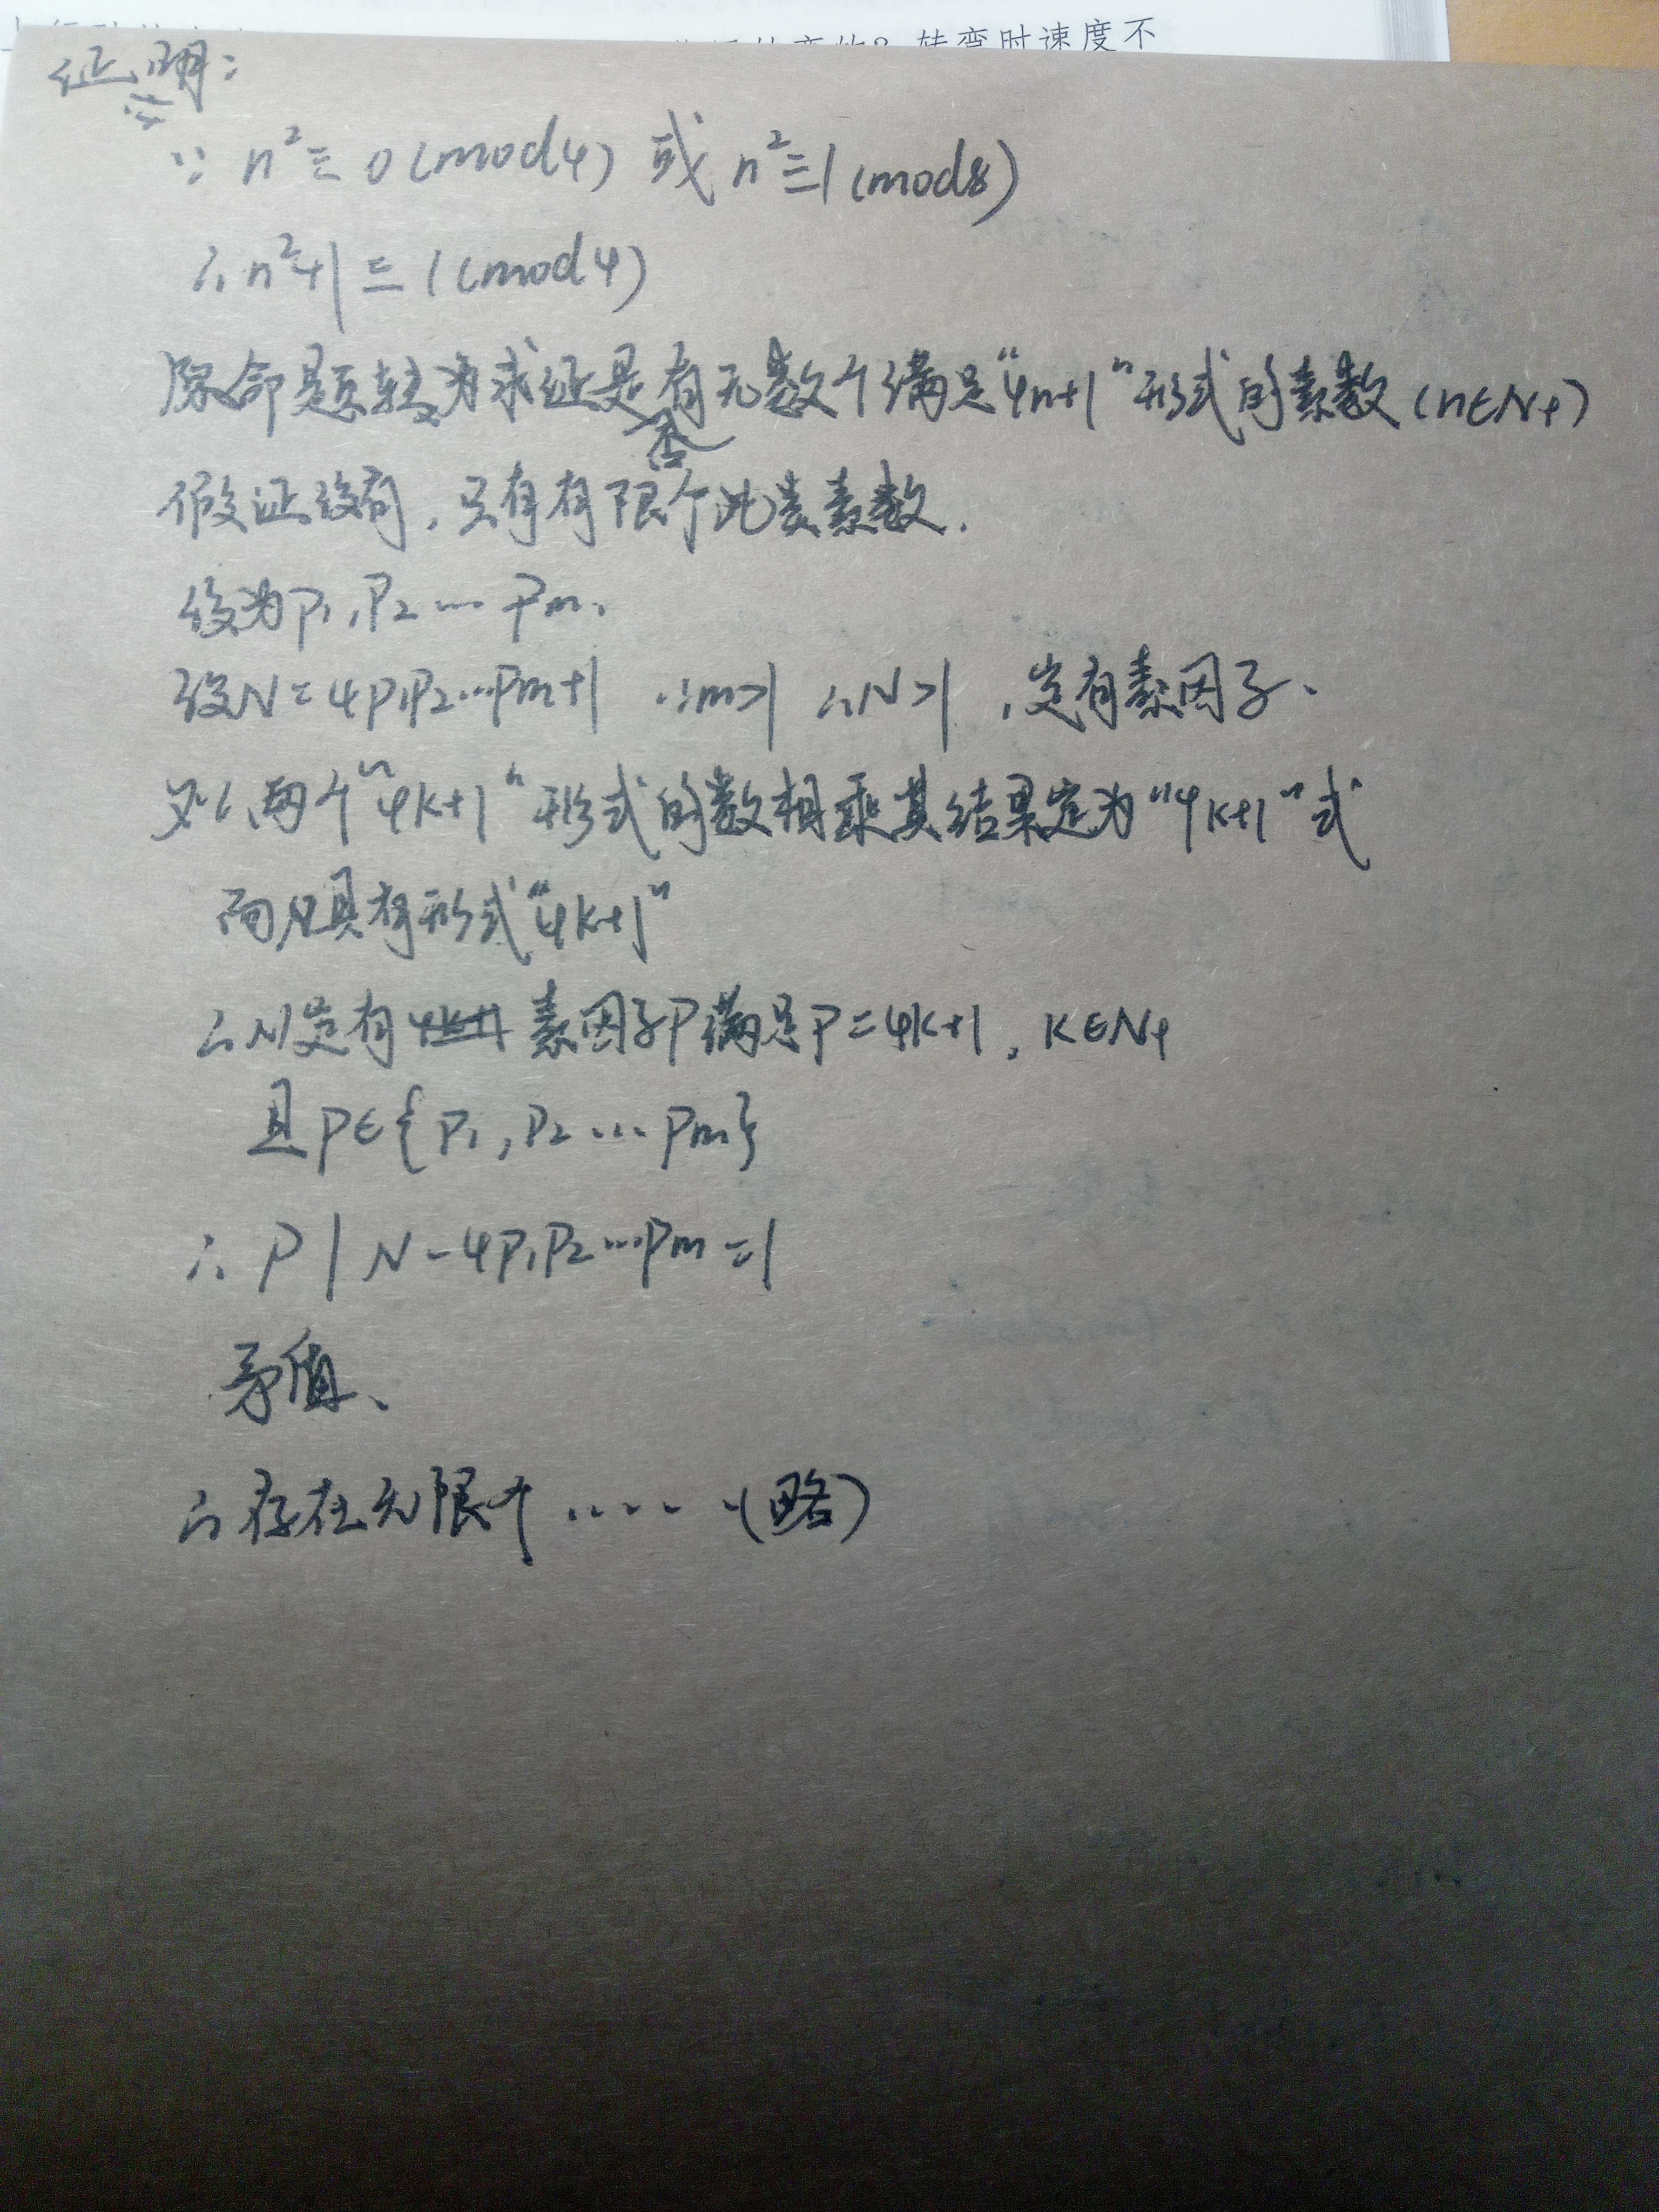 转弯时速度不
证明:
∵ n²≡0(mod4) 或 n²≡1(mod8)
∴n²+1≡1(mod4)
原命题转为求证是否有无数个满足"4n+1"形式的素数(n∈N+)
假证没有,只有有限个此类素数.
设为P₁,P₂…Pm.
设N=4P₁P₂…Pm+1 ∵m>1 ∴N>1 ,定有素因子、
又∵两个"4k+1"形式的数相乘其结果定为"4k+1"式
而N具有形式"4k+1"
∴N定有 4k+1 素因子P满足P=4k+1, K∈N+
且P∈{P₁,P₂…Pm}
∴ P | N-4P₁P₂…Pm=1
矛盾、
∴存在无限个……(略)